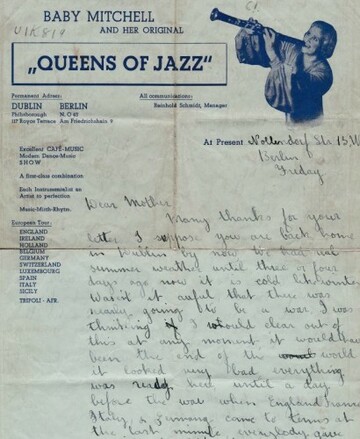 BABY MITCHELL
AND HER ORIGINAL
„QUEENS OF JAZZ“
Permanent Adress:
DUBLIN BERLIN
Phibsborough N.O 43
117 Royce Terrace Am Friedrichshain 9
All communications:
Reinhold Schmidt, Manager
Excellent CAFÉ-MUSIC
Modern Dance-Music
SHOW
A first-class combination
Each Instrumentalist an
Artist to perfection
Music-Mirth-Rhytm.
European Tour:
ENGLAND
IRELAND
HOLLAND
BELGIUM
GERMANY
SWITZERLAND
LUXEMBOURG
SPAIN
ITALY
SICILY
TRIPOLI - AFR.
At Present Nollendorf Str. 13
Berlin
Friday
Dear Mother
Many thanks for your
letter I suppose you are back home
in Dublin by now we had real
summer weather until three or four
days ago now it is cold like winter
wasn't it awful that there was
nearly going to be a war. I was
thinking I would clear out of
this at any moment it would have
been the end of the world
it looked very bad everything
was ready here until a day
before the war when England France
Italy & Germany came to terms at
the last minute everybody gave